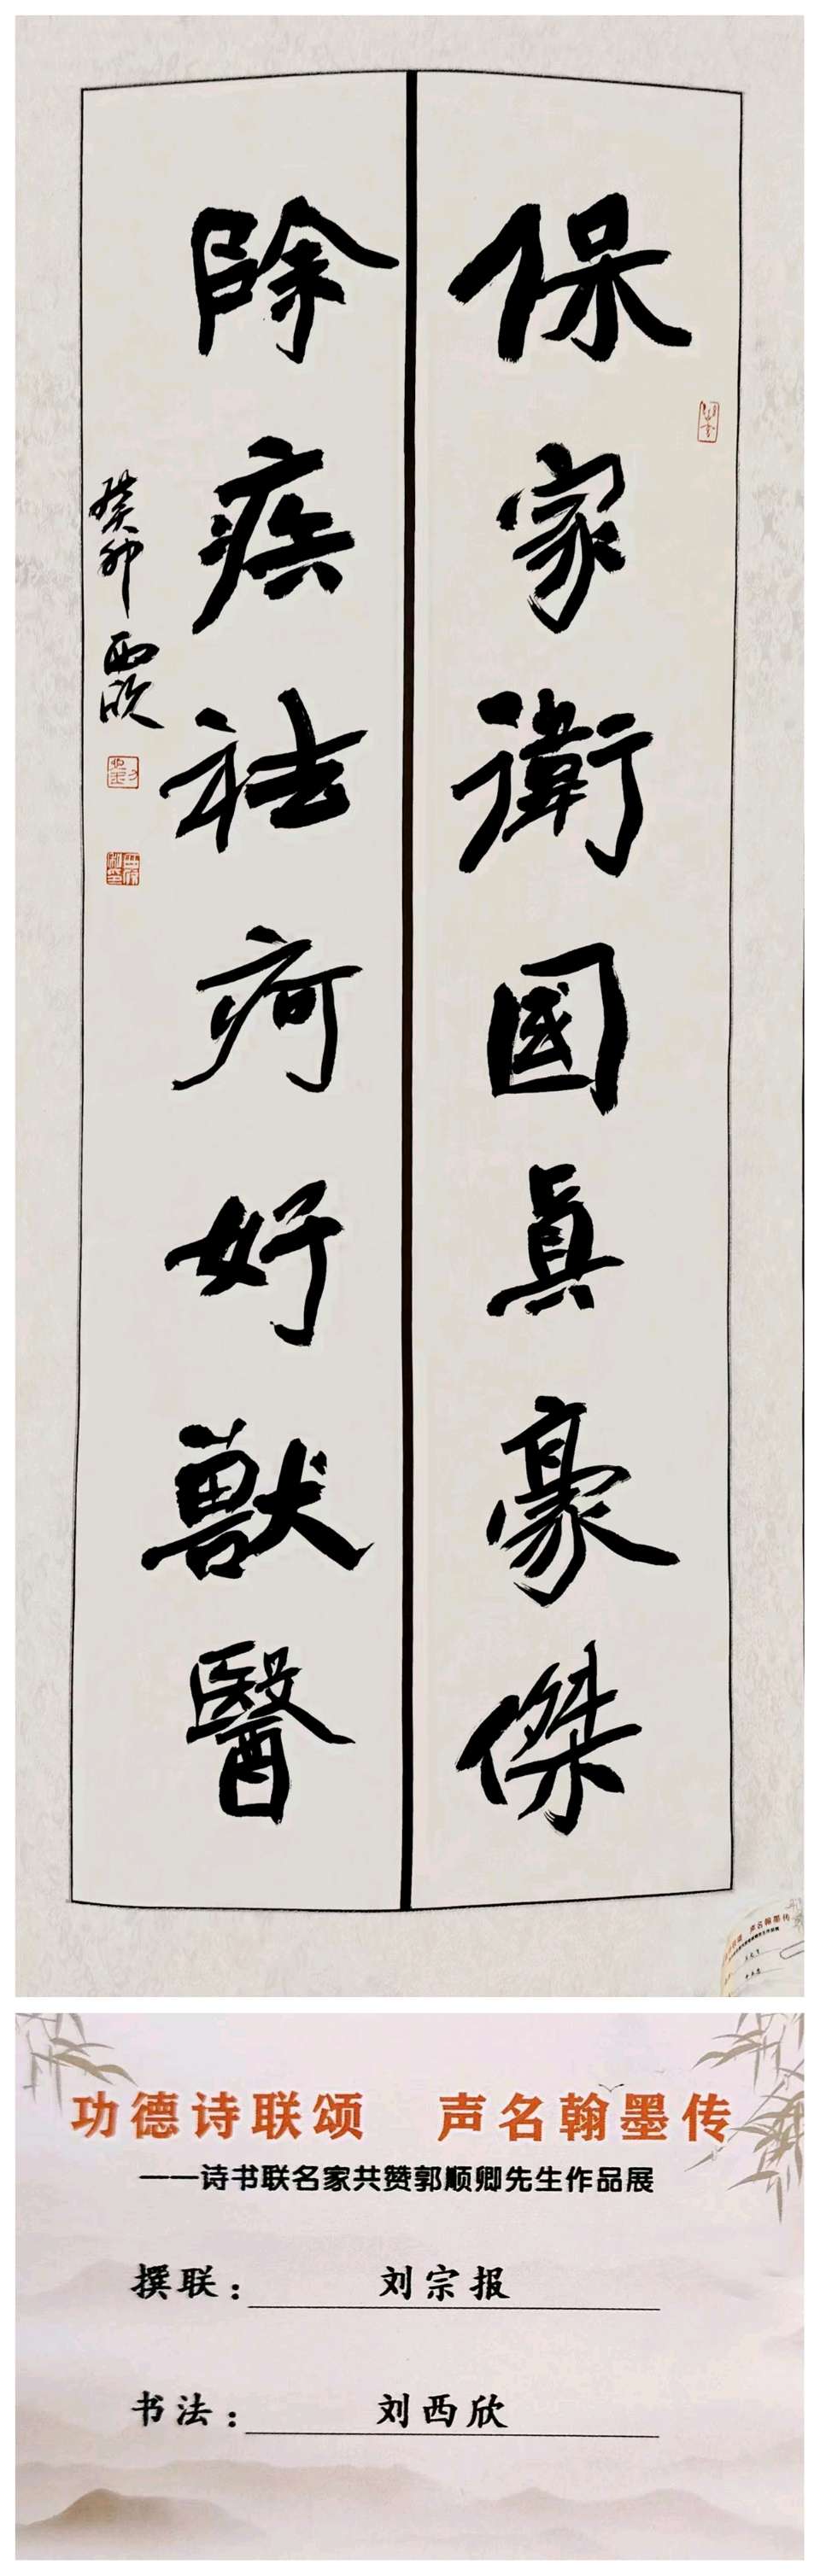 保家衛國真豪傑
除疾祛疴好獸醫
癸卯西欣
功德诗联颂 声名翰墨传
——诗书联名家共赞郭顺卿先生作品展
撰联：刘宗报
书法：刘西欣